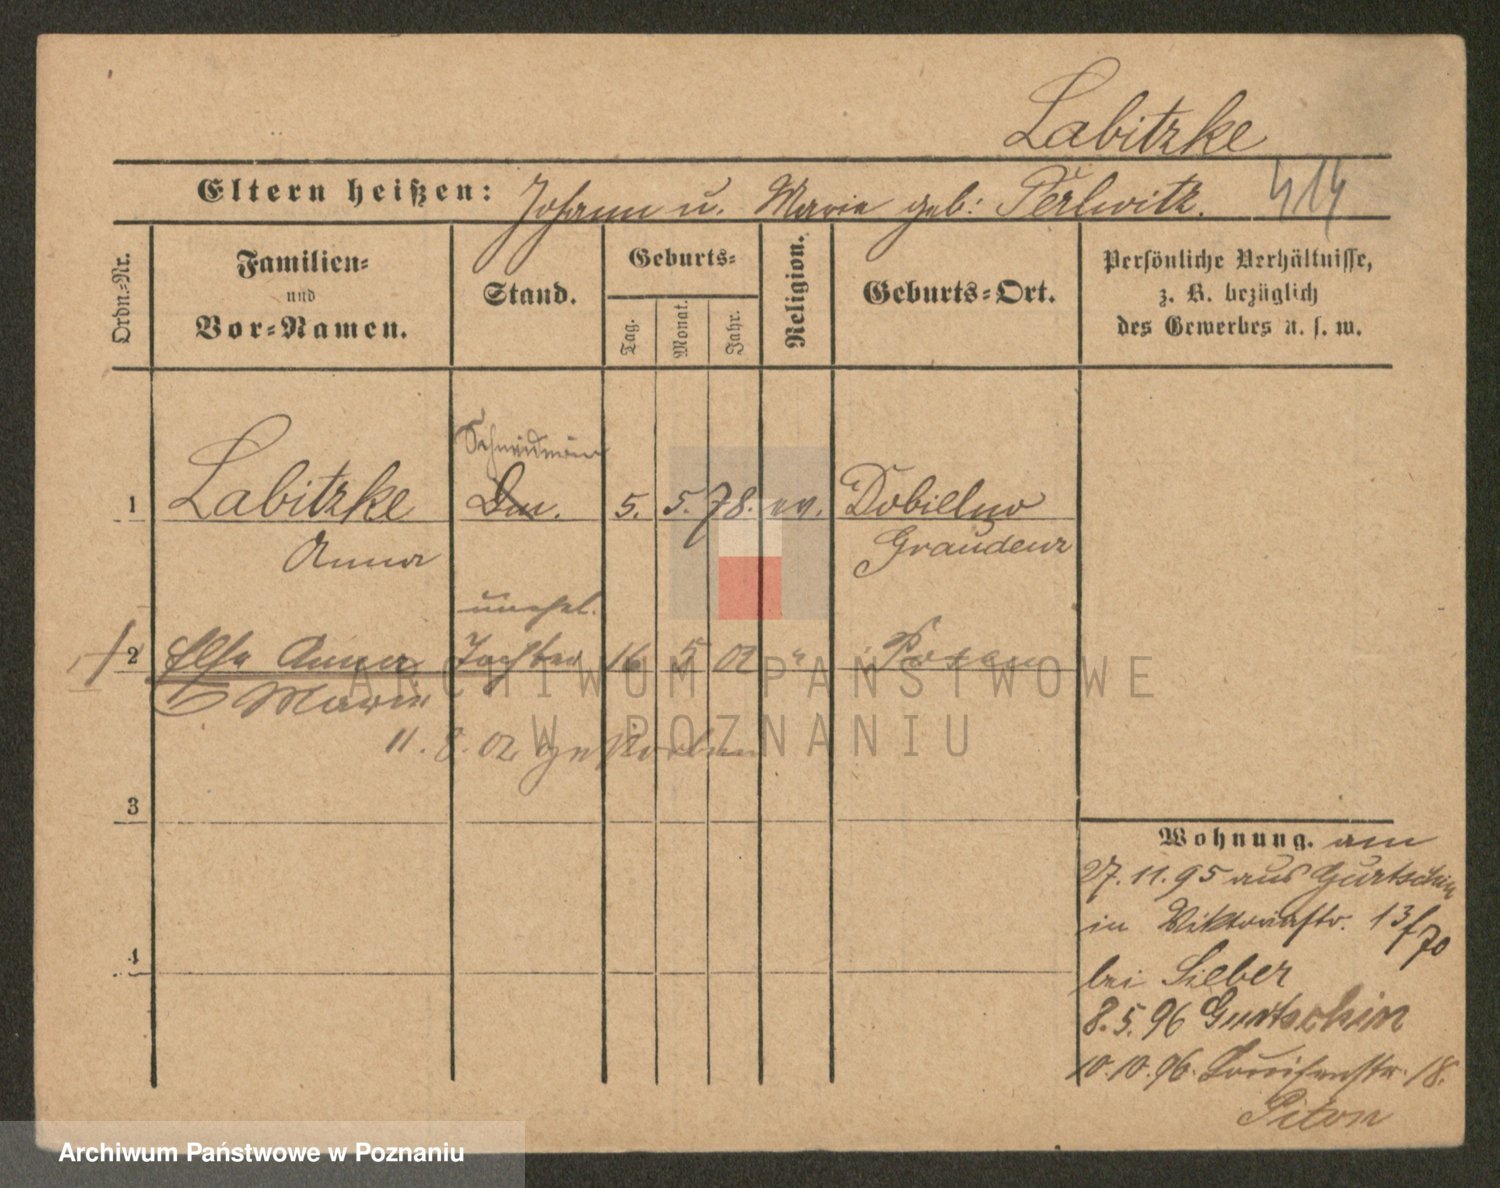 Labitzke
Eltern heißen: Johann u. Marie geb: Perlwitz.
414
Ordn.-Nr.
Familien-
und
Vor-Namen.
Stand.
Geburts-
Tag.
Monat.
Jahr.
Religion.
Geburts-Ort.
Persönliche Verhältnisse,
z. B. bezüglich
des Gewerbes u. s. w.
Schneiderin
1 Labitzke Dm. 5. 5. 78. ev. Dobielno
Anna Graudenz
unehel.
2 Else Anna Tochter 16 5 02 " Posen
Marie
11. 8. 02 gestorben
3
4
Wohnung. am
27. 11. 95 aus Gurtschin
in Viktoriastr. 13/70
bei Sieber
8. 5. 96 Gurtschin
10. 10. 96. Louisenstr. 18.
Piton
ARCHIWUM PAŃSTWOWE
W POZNANIU
Archiwum Państwowe w Poznaniu